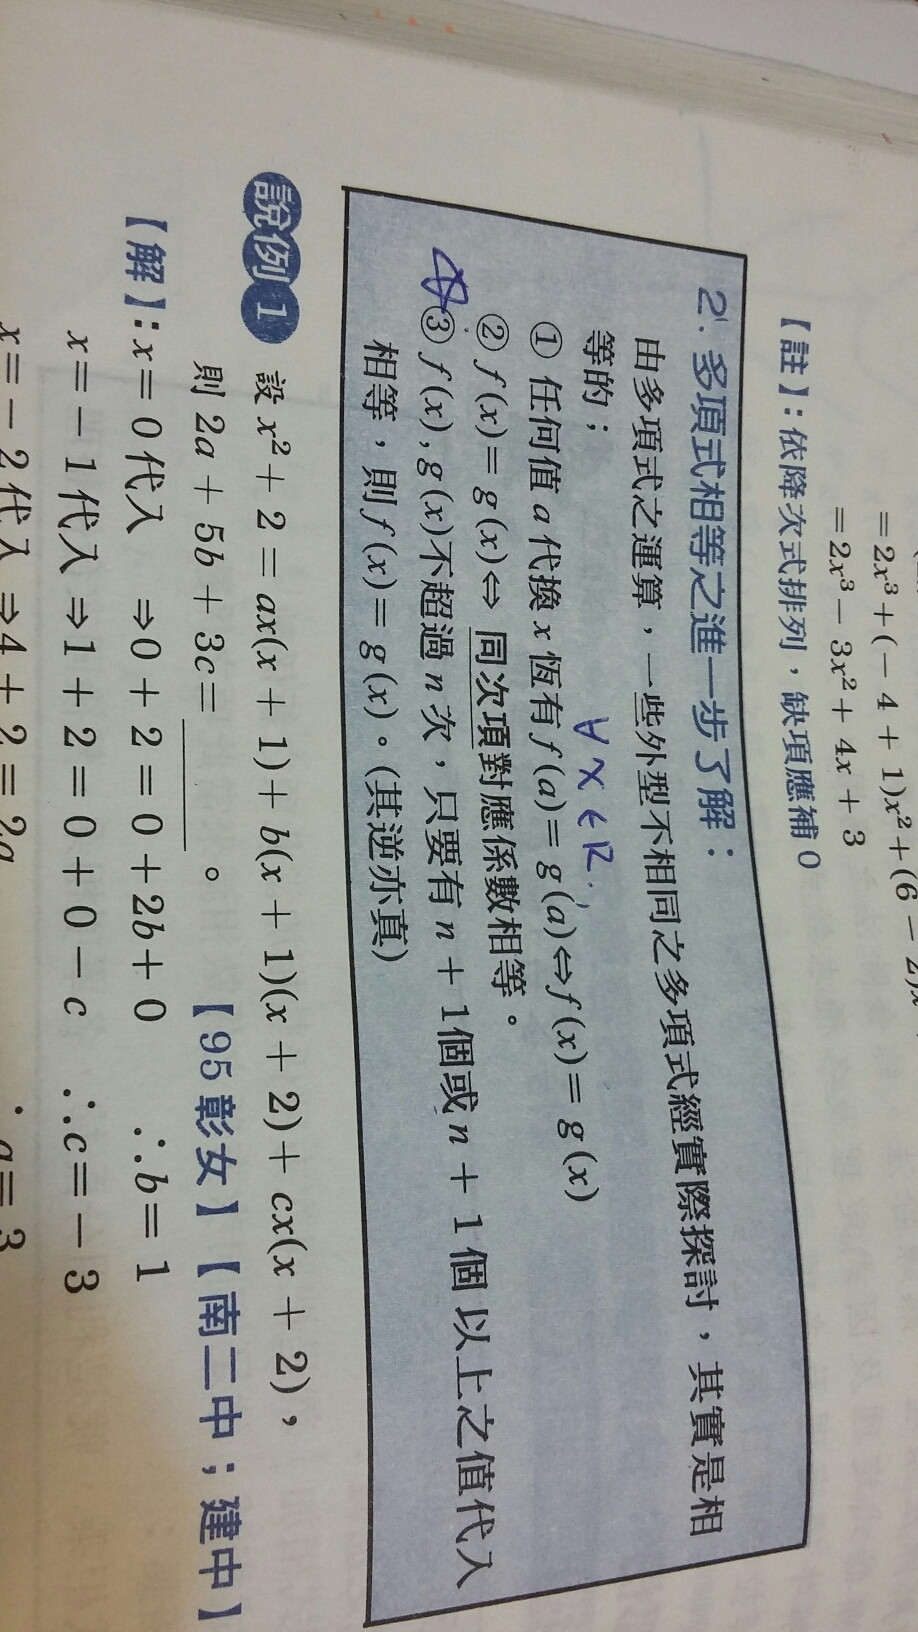 =2x³+(-4+1)x²+(6-2)x
=2x³-3x²+4x+3
【註】:依降次式排列，缺項應補0
2. 多項式相等之進一步了解：
由多項式之運算，一些外型不相同之多項式經實際探討，其實是相
等的；
∀x∈R.
① 任何值a代換x恆有f(a)=g(a)⇔f(x)=g(x)
② f(x)=g(x)⇔同次項對應係數相等。
③ f(x),g(x)不超過n次，只要有n+1個或n+1個以上之值代入
相等，則f(x)=g(x)。(其逆亦真)
說例1 設x²+2=ax(x+1)+b(x+1)(x+2)+cx(x+2)，
則2a+5b+3c=______。 【95彰女】【南二中；建中】
【解】:x=0代入 ⇒0+2=0+2b+0 ∴b=1
x=-1代入 ⇒1+2=0+0-c ∴c=-3
x=-2代入 ⇒4+2=2a ∴a=3